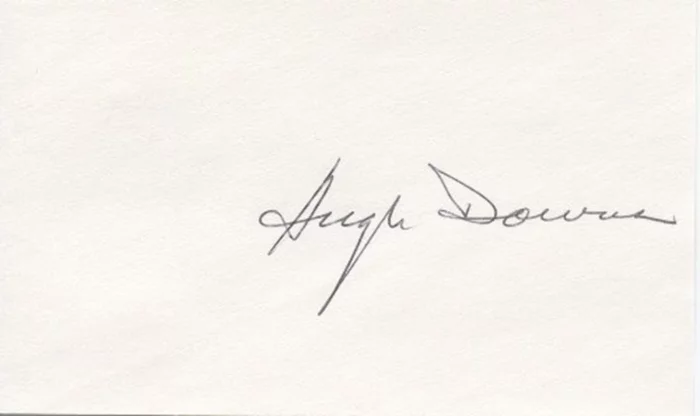 Hugh Downs